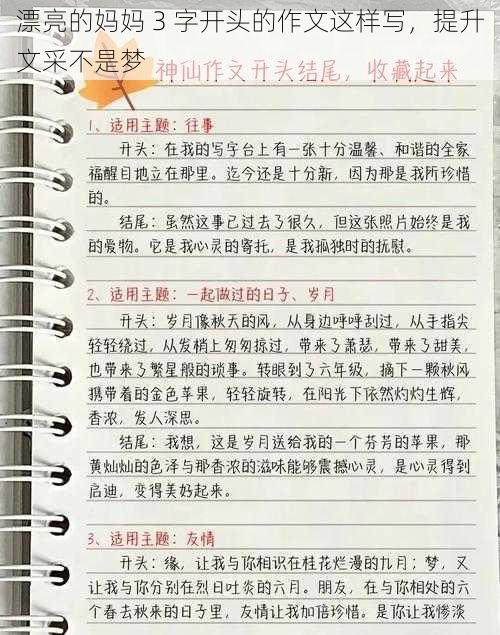 漂亮的妈妈 3 字开头的作文这样写，提升
文采不是梦
神仙作文开头结尾，收藏起来
1、适用主题：往事
开头：在我的写字台上有一张十分温馨、和谐的全家
福醒目地立在那里。迄今还是十分新，因为那是我所珍惜
的。
结尾：虽然这事已过去了很久，但这张照片始终是我
的爱物。它是我心灵的寄托，是我孤独时的抚慰。
2、适用主题：一起做过的日子、岁月
开头：岁月像秋天的风，从身边呼呼刮过，从手指尖
轻轻绕过，从发梢上匆匆掠过，带来了萧瑟，带来了甜美，
也带来了繁星般的琐事。转眼到了六年级，摘下一颗秋风
携带着的金色苹果，轻轻旋转，在阳光下依然灼灼生辉，
香浓，发人深思。
结尾：我想，这是岁月送给我的一个芬芳的苹果，那
黄灿灿的色泽与那香浓的滋味能够震撼心灵，是心灵得到
启迪，变得美好起来。
3、适用主题：友情
开头：缘，让我与你相识在桂花烂漫的九月；梦，又
让我与你分别在烈日吐炎的六月。朋友，在与你相处的六
个春去秋来的日子里，友情让我加倍珍惜。是你让我惨淡